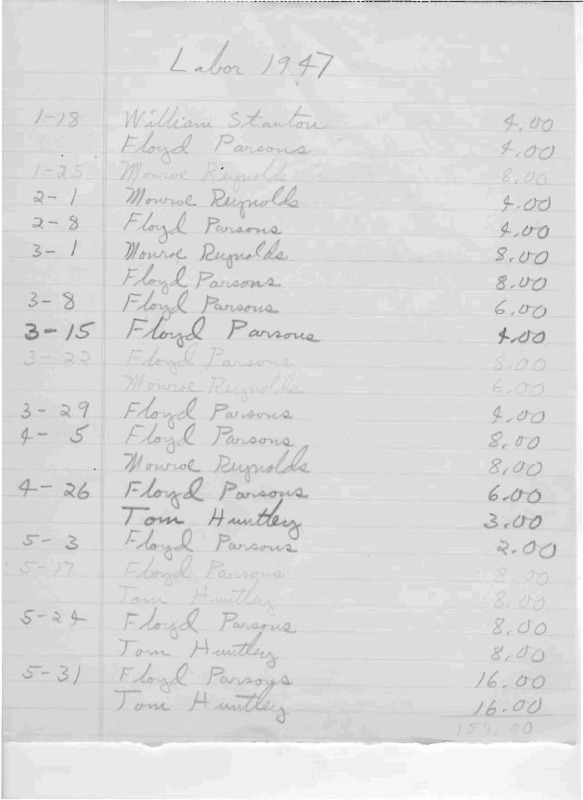 Labor 1947
1-18 William Stanton 4.00
Floyd Parsons 4.00
1-25 Monroe Reynolds 8.00
2-1 Monroe Reynolds 4.00
2-8 Floyd Parsons 4.00
3-1 Monroe Reynolds 8.00
Floyd Parsons 8.00
3-8 Floyd Parsons 6.00
3-15 Floyd Parsons 4.00
3-22 Floyd Parsons 8.00
Monroe Reynolds 6.00
3-29 Floyd Parsons 4.00
4-5 Floyd Parsons 8.00
Monroe Reynolds 8.00
4-26 Floyd Parsons 6.00
Tom Huntley 3.00
5-3 Floyd Parsons 2.00
5-17 Floyd Parsons 8.00
Tom Huntley 8.00
5-24 Floyd Parsons 8.00
Tom Huntley 8.00
5-31 Floyd Parsons 16.00
Tom Huntley 16.00
159.00